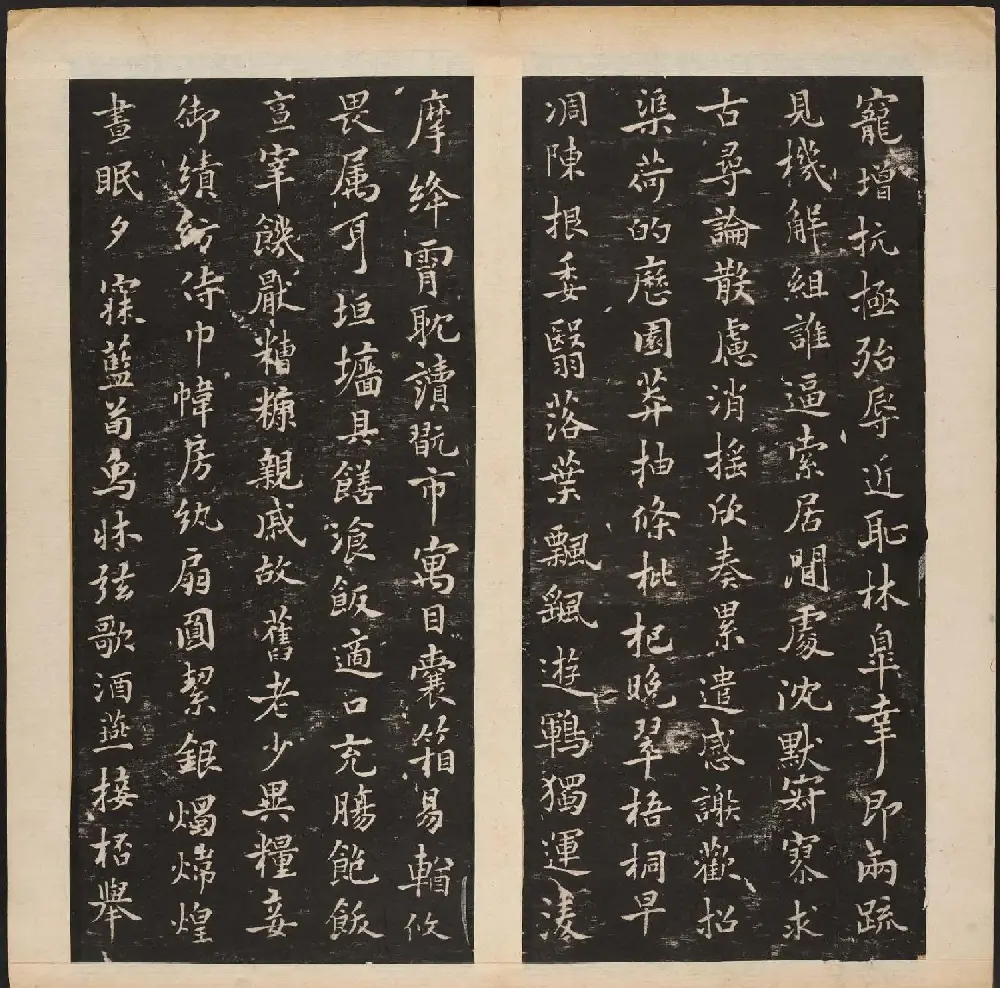 寵增抗極殆辱近恥林皐幸即兩疏
見機解組誰逼索居閒處沈默寂寥求
古尋論散慮消搖欣奏累遣慼謝歡招
渠荷的歷園莽抽條枇杷晚翠梧桐早
凋陳根委翳落葉飄颻遊鵾獨運淩
摩絳霄耽讀翫市寓目囊箱易輶攸
畏属耳垣墻具饍湌飯適口充腸飽飫
亯宰饑厭糟糠親戚故舊老少異糧妾
御績紡侍巾帷房紈扇圓絜銀燭煒煌
晝眠夕寐藍荀鳥牀弦歌酒燕接桮舉